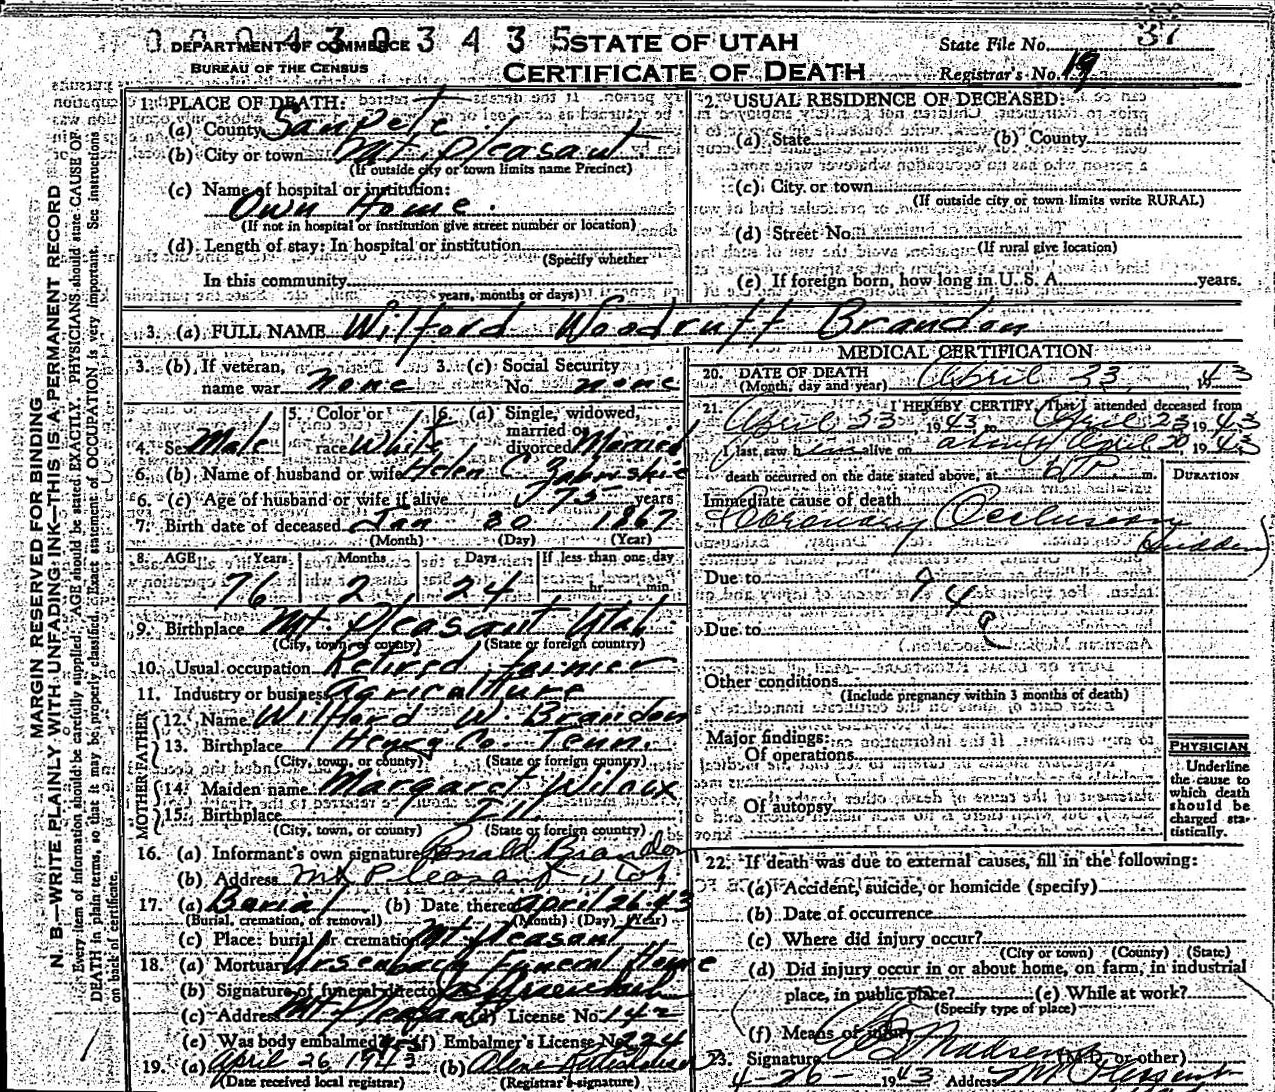 0 0 0 4 3 0 3 4 3 5
DEPARTMENT OF COMMERCE
BUREAU OF THE CENSUS
STATE OF UTAH
CERTIFICATE OF DEATH
State File No. 37
Registrar's No. 19
MARGIN RESERVED FOR BINDING
N. B.—WRITE PLAINLY WITH UNFADING INK—THIS IS A PERMANENT RECORD
Every item of information should be carefully supplied. AGE should be stated EXACTLY. PHYSICIANS should state CAUSE OF
DEATH in plain terms, so that it may be properly classified. Exact statement of OCCUPATION is very important. See instructions
on back of certificate.
1. PLACE OF DEATH:
(a) County Sanpete
(b) City or town Mt. Pleasant
(If outside city or town limits name Precinct)
(c) Name of hospital or institution:
Own Home.
(If not in hospital or institution give street number or location)
(d) Length of stay: In hospital or institution
(Specify whether
In this community
years, months or days)
2. USUAL RESIDENCE OF DECEASED:
(a) State (b) County
(c) City or town
(If outside city or town limits write RURAL)
(d) Street No.
(If rural give location)
(e) If foreign born, how long in U. S. A. years.
3. (a) FULL NAME Wilford Woodruff Brandon
3. (b) If veteran, name war none
3. (c) Social Security No. none
4. Sex Male
5. Color or race White
6. (a) Single, widowed, married or divorced Married
6. (b) Name of husband or wife Helen C. Zabriskie
6. (c) Age of husband or wife if alive 75 years
7. Birth date of deceased Jan 30 1867
(Month) (Day) (Year)
8. AGE Years Months Days If less than one day
76 2 24 hr. min.
9. Birthplace Mt. Pleasant Utah
(City, town, or county) (State or foreign country)
10. Usual occupation Retired farmer
11. Industry or business Agriculture
FATHER
12. Name Wilford W. Brandon
13. Birthplace Henry Co. Tenn.
(City, town, or county) (State or foreign country)
MOTHER
14. Maiden name Margaret Wilcox
15. Birthplace Ill.
(City, town, or county) (State or foreign country)
16. (a) Informant's own signature Ronald Brandon
(b) Address Mt Pleasant Utah
17. (a) Burial (b) Date thereof April 26-43
(Burial, cremation, or removal) (Month) (Day) (Year)
(c) Place: burial or cremation Mt Pleasant
18. (a) Mortuary Ursenbach Funeral Home
(b) Signature of funeral director Ursenbach
(c) Address Mt Pleasant (d) License No. 142
(e) Was body embalmed yes (f) Embalmer's License No. 224
19. (a) April 26 1943 (b)
(Date received local registrar) (Registrar's signature)
MEDICAL CERTIFICATION
20. DATE OF DEATH
(Month, day and year) April 23, 1943
21. I HEREBY CERTIFY, That I attended deceased from
April 23 1943 to April 23 1943
I last saw him alive on April 20, 1943
death occurred on the date stated above, at 6 P m.
DURATION
Immediate cause of death
Coronary Occlusion
Sudden
Due to
94a
Due to
Other conditions
(Include pregnancy within 3 months of death)
Major findings:
Of operations
Of autopsy
PHYSICIAN
Underline
the cause to
which death
should be
charged sta-
tistically.
22. If death was due to external causes, fill in the following:
(a) Accident, suicide, or homicide (specify)
(b) Date of occurrence
(c) Where did injury occur?
(City or town) (County) (State)
(d) Did injury occur in or about home, on farm, in industrial
place, in public place? (e) While at work?
(Specify type of place)
(f) Means of injury
23. Signature Madsen (M.D. or other)
4-26-1943 Address Mt Pleasant